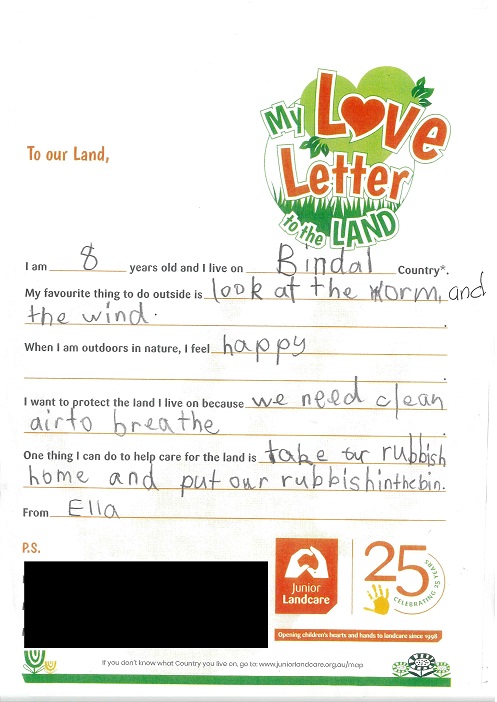 My Love
Letter
to the LAND
To our Land,
I am 8 years old and I live on Bindal Country*.
My favourite thing to do outside is look at the worm, and
the wind.
When I am outdoors in nature, I feel happy
.
I want to protect the land I live on because we need clean
air to breathe.
One thing I can do to help care for the land is take our rubbish
home and put our rubbish in the bin.
From Ella
P.S.
Junior
Landcare
25 YEARS
CELEBRATING
Opening children's hearts and hands to landcare since 1998
If you don't know what Country you live on, go to: www.juniorlandcare.org.au/map